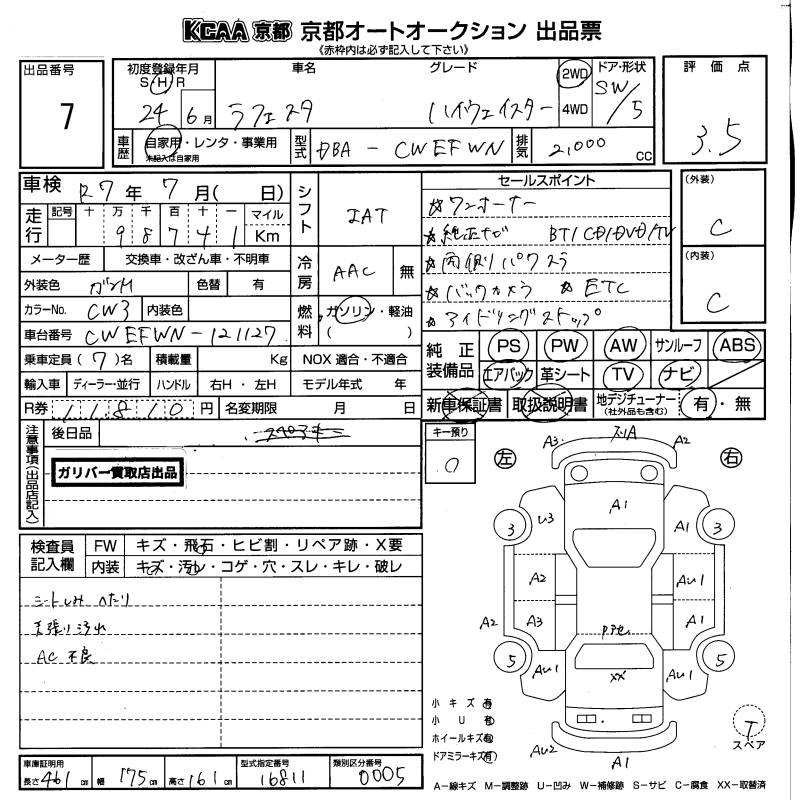 KCAA 京都 京都オートオークション 出品票
《赤枠内は必ず記入して下さい》
出品番号
7
初度登録年月
S H R
24 6月
車名
ラフェスタ
グレード
ハイウェイスター
2WD
4WD
ドア・形状
SW/5
評価点
3.5
車歴 自家用・レンタ・事業用
未記入は自家用
型式 DBA-CWEFWN
排気 2,000 cc
車検 R7年 7月( 日)
走行 記号 十 万 千 百 十 一 マイル
9 8 7 4 1 Km
メーター歴 交換車・改ざん車・不明車
外装色 ガンM 色替 有
カラーNo. CW3 内装色
車台番号 CWEFWN-121127
乗車定員 (7)名 積載量 Kg
輸入車 ディーラー・並行 ハンドル 右H・左H
R券 11810円 名変期限 月 日
シフト IAT
冷房 AAC 無
燃料 ガソリン・軽油
( )
NOX 適合・不適合
モデル年式 年
セールスポイント
☆ワンオーナー
☆純正ナビ BT/CD/DVD/TV
☆両側パワスラ
☆バックカメラ ☆ETC
☆アイドリングストップ
(外装)
C
(内装)
C
純正装備品 PS PW AW サンルーフ ABS
エアバック 革シート TV ナビ
新車保証書 取扱説明書 地デジチューナー(社外品も含む) 有・無
注意事項(出品店記入)
後日品
ガリバー買取店出品
キー預り
0
検査員記入欄
FW キズ・飛石・ヒビ割・リペア跡・X要
内装 キズ・汚れ・コゲ・穴・スレ・キレ・破レ
シートしみ へたり
天張り汚れ
AC 不良
左 右
A3 ズリA A2
U3 A1 A1
3 3
A2 AU1
A2 A3 A1
Pアセ
5 5
AU1 XX AU1
AU2 A1
小キズ 有
小U 有
ホイールキズ 有
ドアミラーキズ(有)
T
スペア
車庫証明用
長さ 461cm 幅 175cm 高さ 161cm
型式指定番号
16811
類別区分番号
0005
A-線キズ M-調整跡 U-凹み W-補修跡 S-サビ C-腐食 XX-取替済